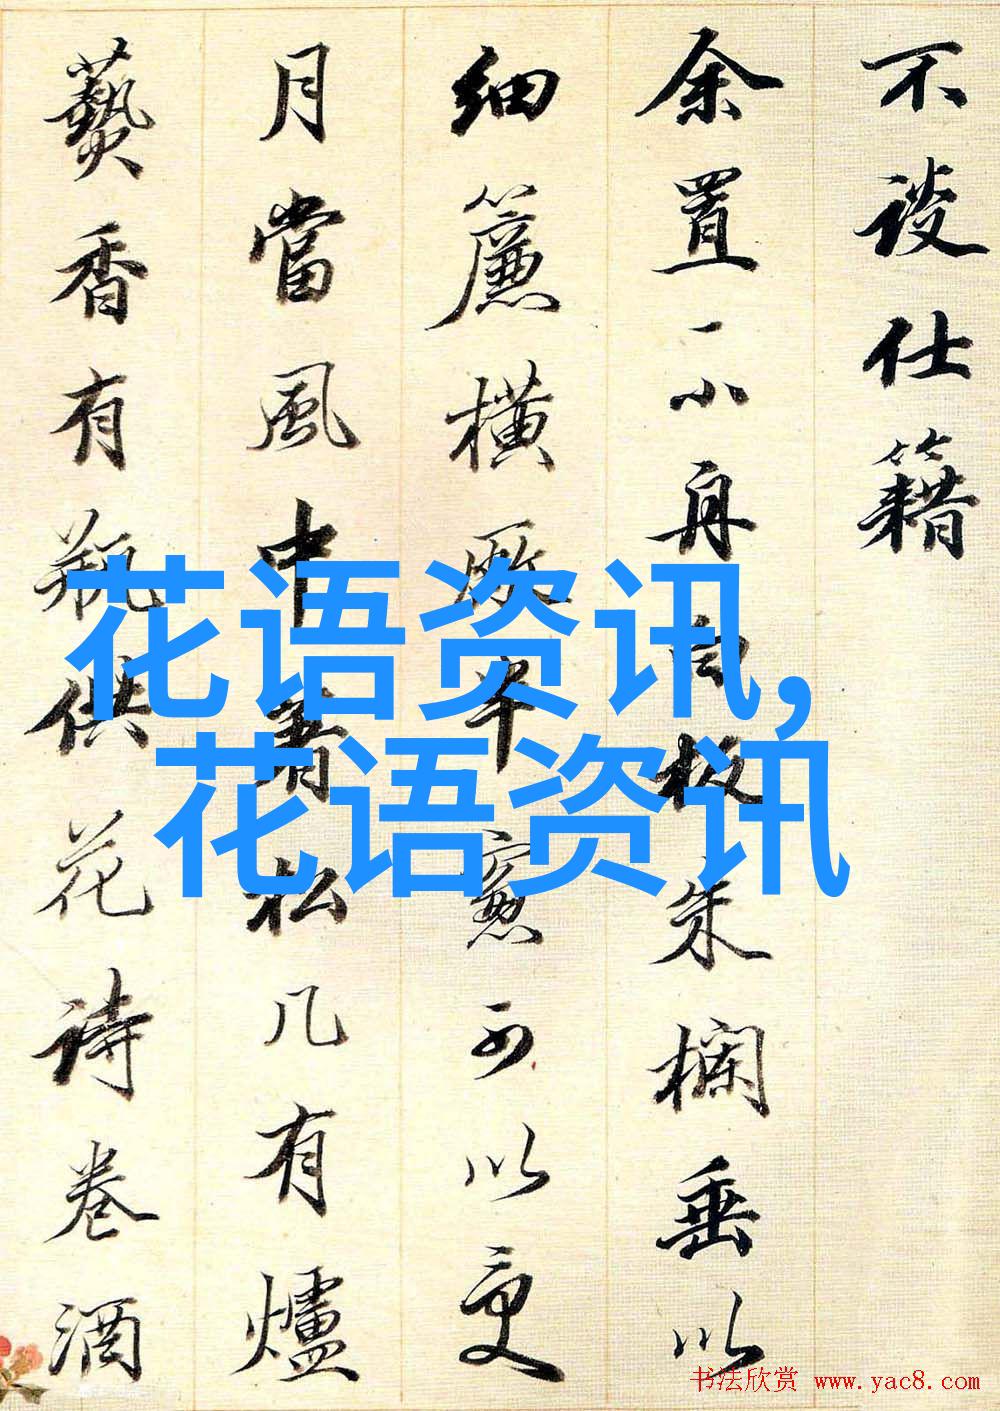 不談仕籍
余置一小舟白板朱欄垂以
細簾橫半窻可以更
月當風中着松几有爐
爇香有瓶供花詩卷酒
花语资讯,
花语资讯
书法欣赏 www.yac8.com